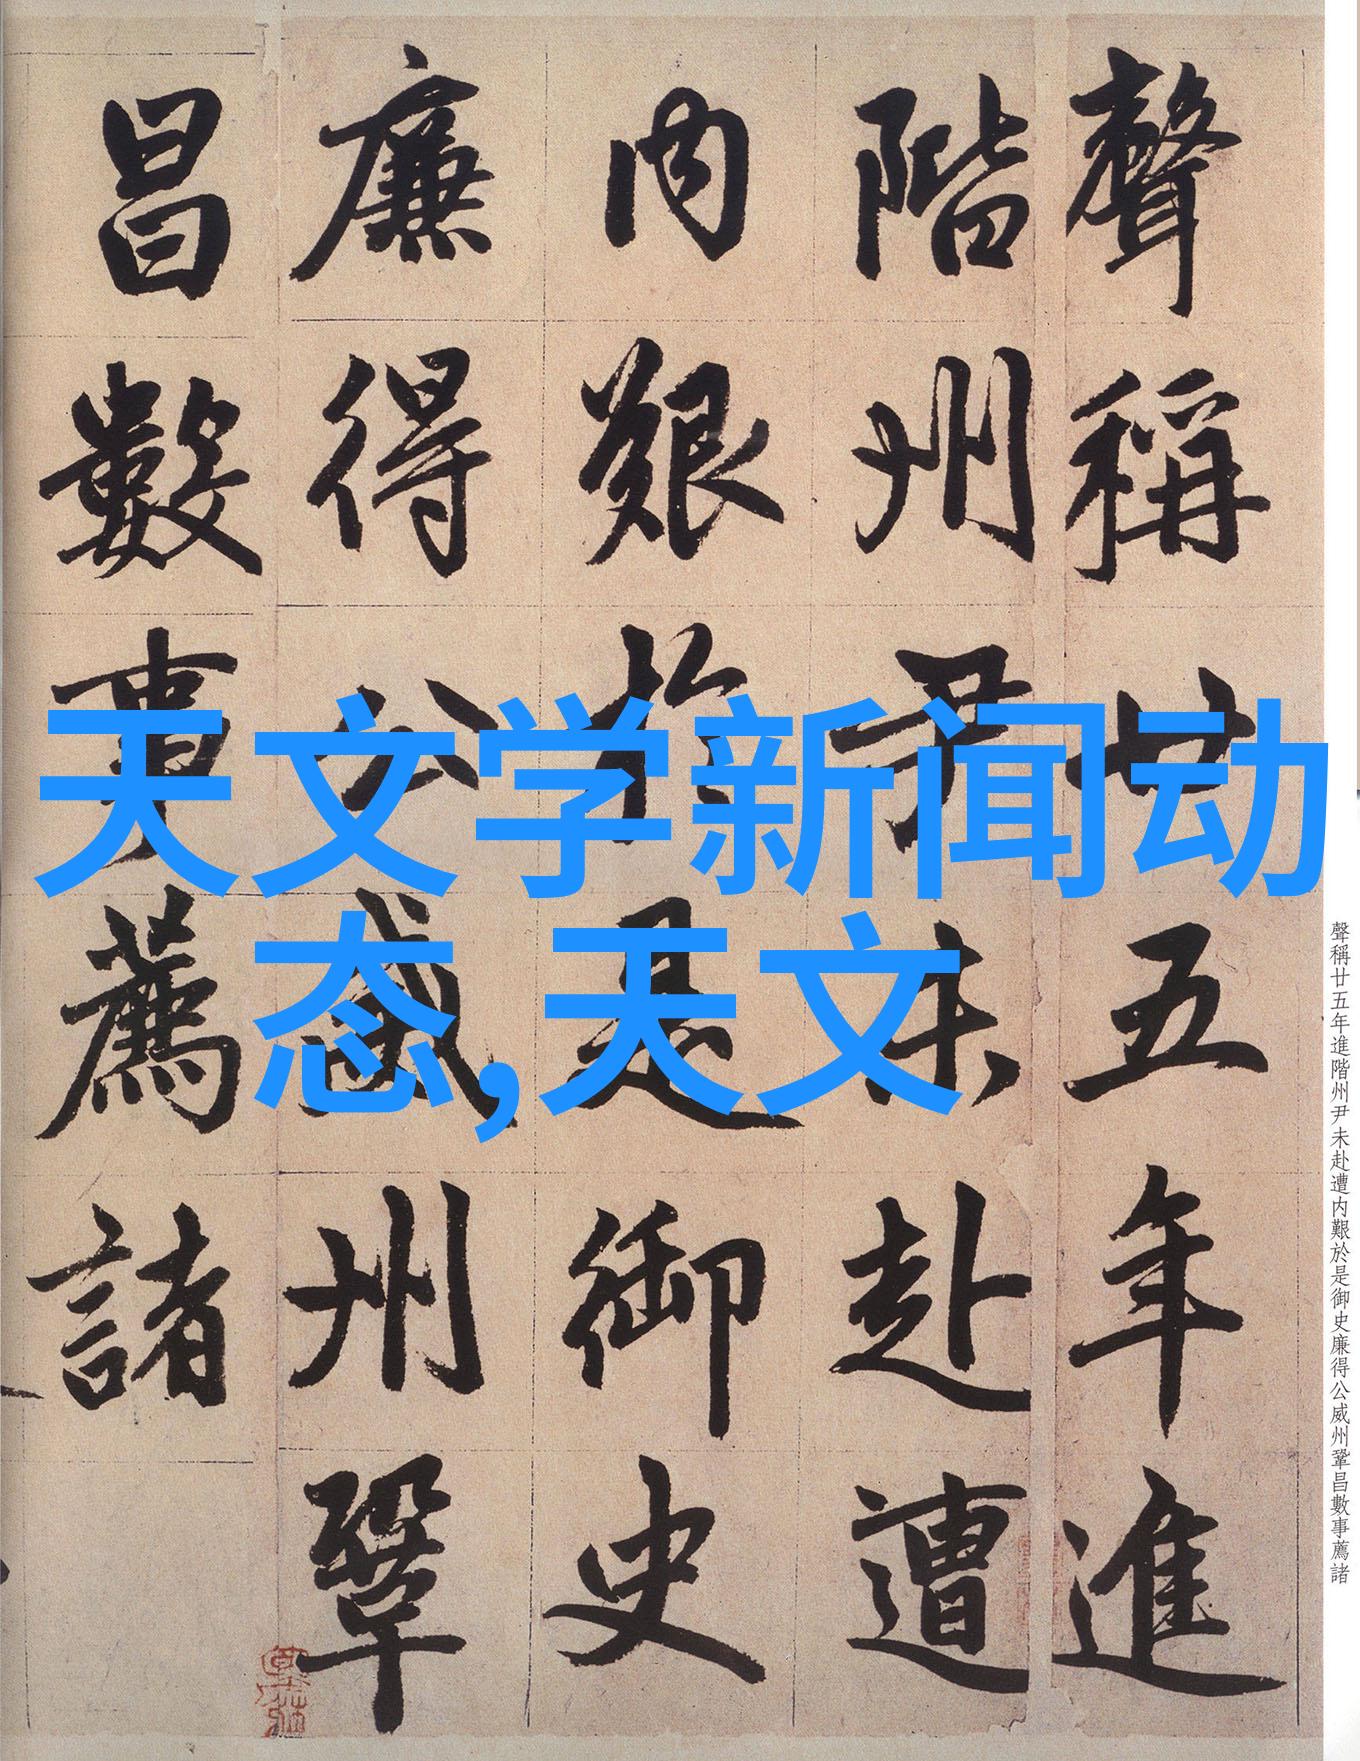 聲稱廿五年進
階州尹未赴遭
內艱於是御史
廉得公威州鞏
昌數事薦諸
天文学新闻动
态,天文
聲稱廿五年進階州尹未赴遭內艱於是御史廉得公威州鞏昌數事薦諸